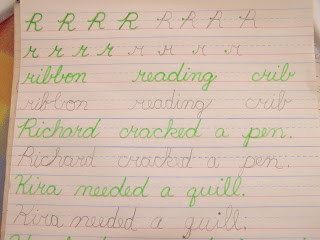 R R R R R R R R
r r r r r r r r
ribbon reading crib
ribbon reading crib
Richard cracked a pen.
Richard cracked a pen.
Kira needed a quill.
Kira needed a quill.